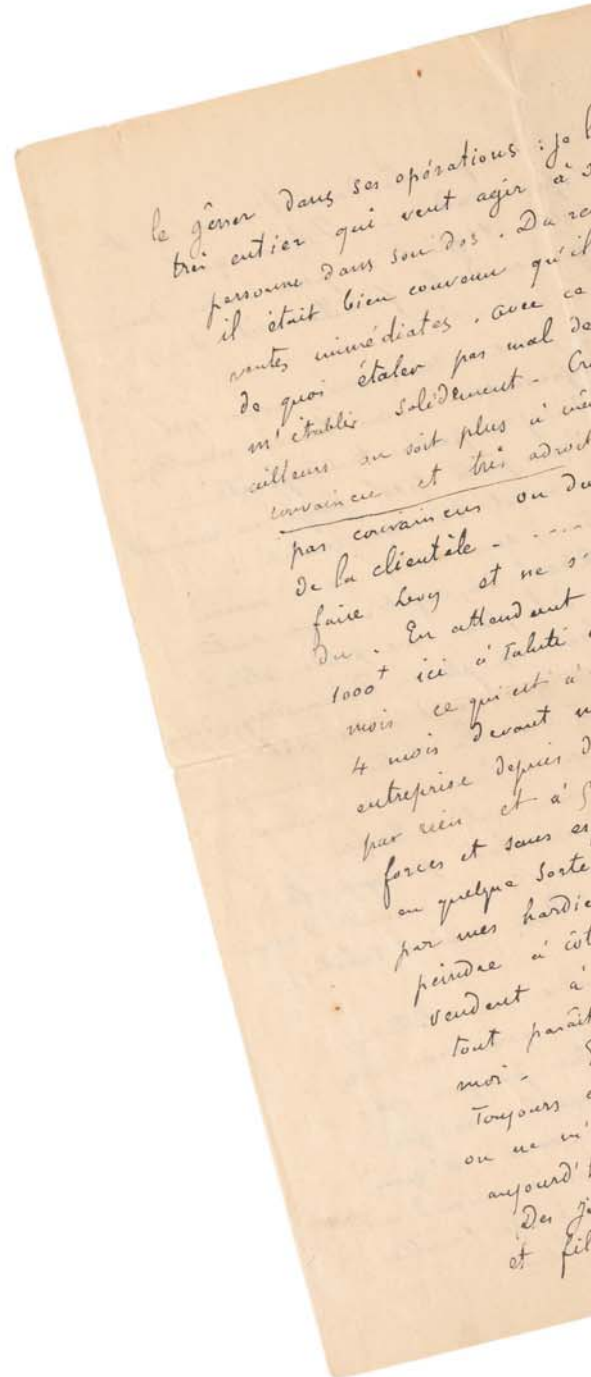 le gêner dans ses opérations : je l
très entier qui veut agir à s
personne dans son dos. Du re
il était bien convenu qu'il
ventes immédiates. avec ce
de quoi étaler pas mal de
m'établir solidement - Cr
ailleurs on soit plus à mê
convaincu et très adroit
pas convaincus on du
de la clientèle - ....
faire Levy et ne s'
du. En attendant
1000+ ici à Tahiti
mois ce qui est à
4 mois devant m
entreprise depuis d
par rien et à
forces et sans es
en quelque sorte
par mes hardie
peindre à côt
vendent à
tout paraît
moi -
Toujours
on ne m'
aujourd'h
Des je
et fil